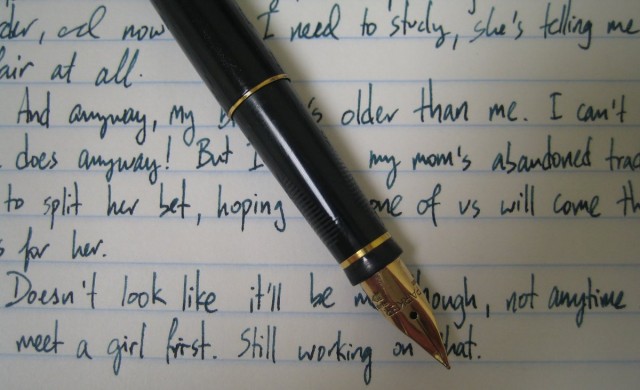 der, and now I need to study, she's telling me
fair at all.
And anyway, my 's older than me. I can't
does anyway! But I my mom's abandoned trad
to split her bet, hoping one of us will come th
s for her.
Doesn't look like it'll be m though, not anytime
meet a girl first. Still working on that.